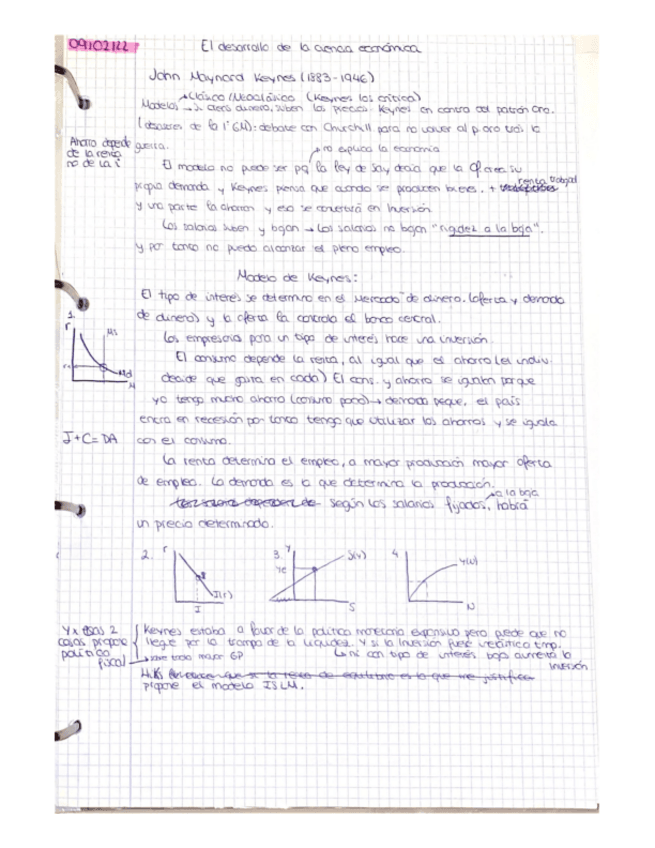 09/02/22
El desarrollo de la ciencia económica
John Maynard Keynes (1883-1946)
Clásico/Neoclásico (Keynes los critica)
Modelos → si dinero, suben los precios. Keynes en contra del patrón oro.
(después de la 1ª GM): debate con Churchill para no volver al p. oro tras la
guerra.
Ahorro depende
de la renta
no de la i
no explica la economía
El modelo no puede ser pq la ley de Say decía que la Of crea su
propia demanda y Keynes piensa que cuando se producen bienes, + renta trabajad
y una parte la ahorran y eso se convertirá en Inversión
Los salarios suben y bajan → Los salarios no bajan "rigidez a la baja".
y por tanto no puedo alcanzar el pleno empleo.
Modelo de Keynes:
El tipo de interés se determina en el Mercado de dinero. (oferta y demanda
de dinero) y la oferta la controla el banco central.
Los empresarios para un tipo de interés hace una inversión.
El consumo depende la renta, al igual que el ahorro (el indiv.
decide que gasta en cada) El cons. y ahorro se igualan porque
yo tengo mucho ahorro (consumo poco) → demanda peque, el país
entra en recesión por tanto tengo que utilizar los ahorros y se iguala
con el consumo.
1.
r
Ms
Md
M
I + C = DA
La renta determina el empleo, a mayor producción mayor oferta
de empleo. La demanda es la que determina la producción.
a la baja
Según los salarios fijados, habrá
un precio determinado.
2. r
I(r)
I
3. Y
Ye
S(Y)
S
4.
Y(N)
N
Y x esas 2
cosas propone
política
fiscal
Keynes estaba a favor de la política monetaria expansiva pero puede que no
llegue por la trampa de la liquidez. Y si la Inversión fuese
sobre todo mayor GP
ni con tipo de interés baja aumenta la
inversión
propone el modelo ISLM.